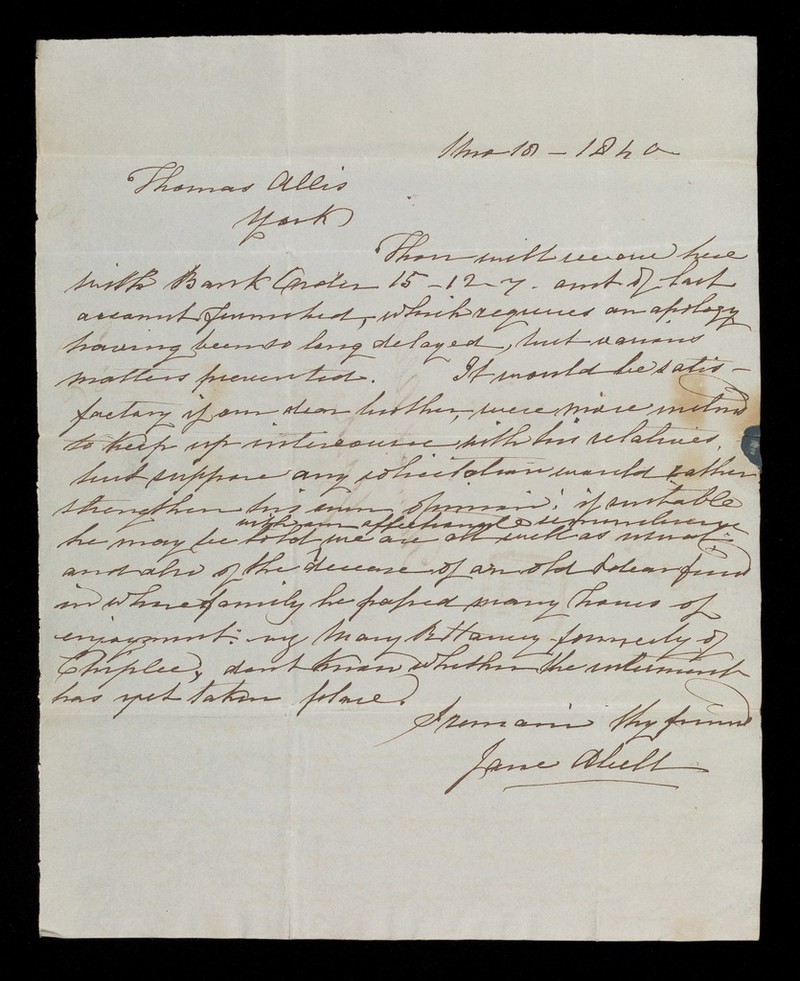 1mo 18 - 1840
Thomas Allis
York
Thou wilt receive here
with Bank Order 15-12-7. amt of last
account furnished, which requires an apology
having been so long delayed, but various
matters prevented. It would be satis-
factory if our dear brother, were more inclined
to keep up intercourse with his relatives,
but suppose any solicitation would rather
strengthen his own opinion: if suitable
with our affectionate remembrance
he may be told, we are all well as usual:
and also of the decease of an old & dear friend
in whose family he passed many hours of
enjoyment: viz Mary B Harvey formerly of
don't know whether the interment
has yet taken place.
I remain thy friend
Jane Abell